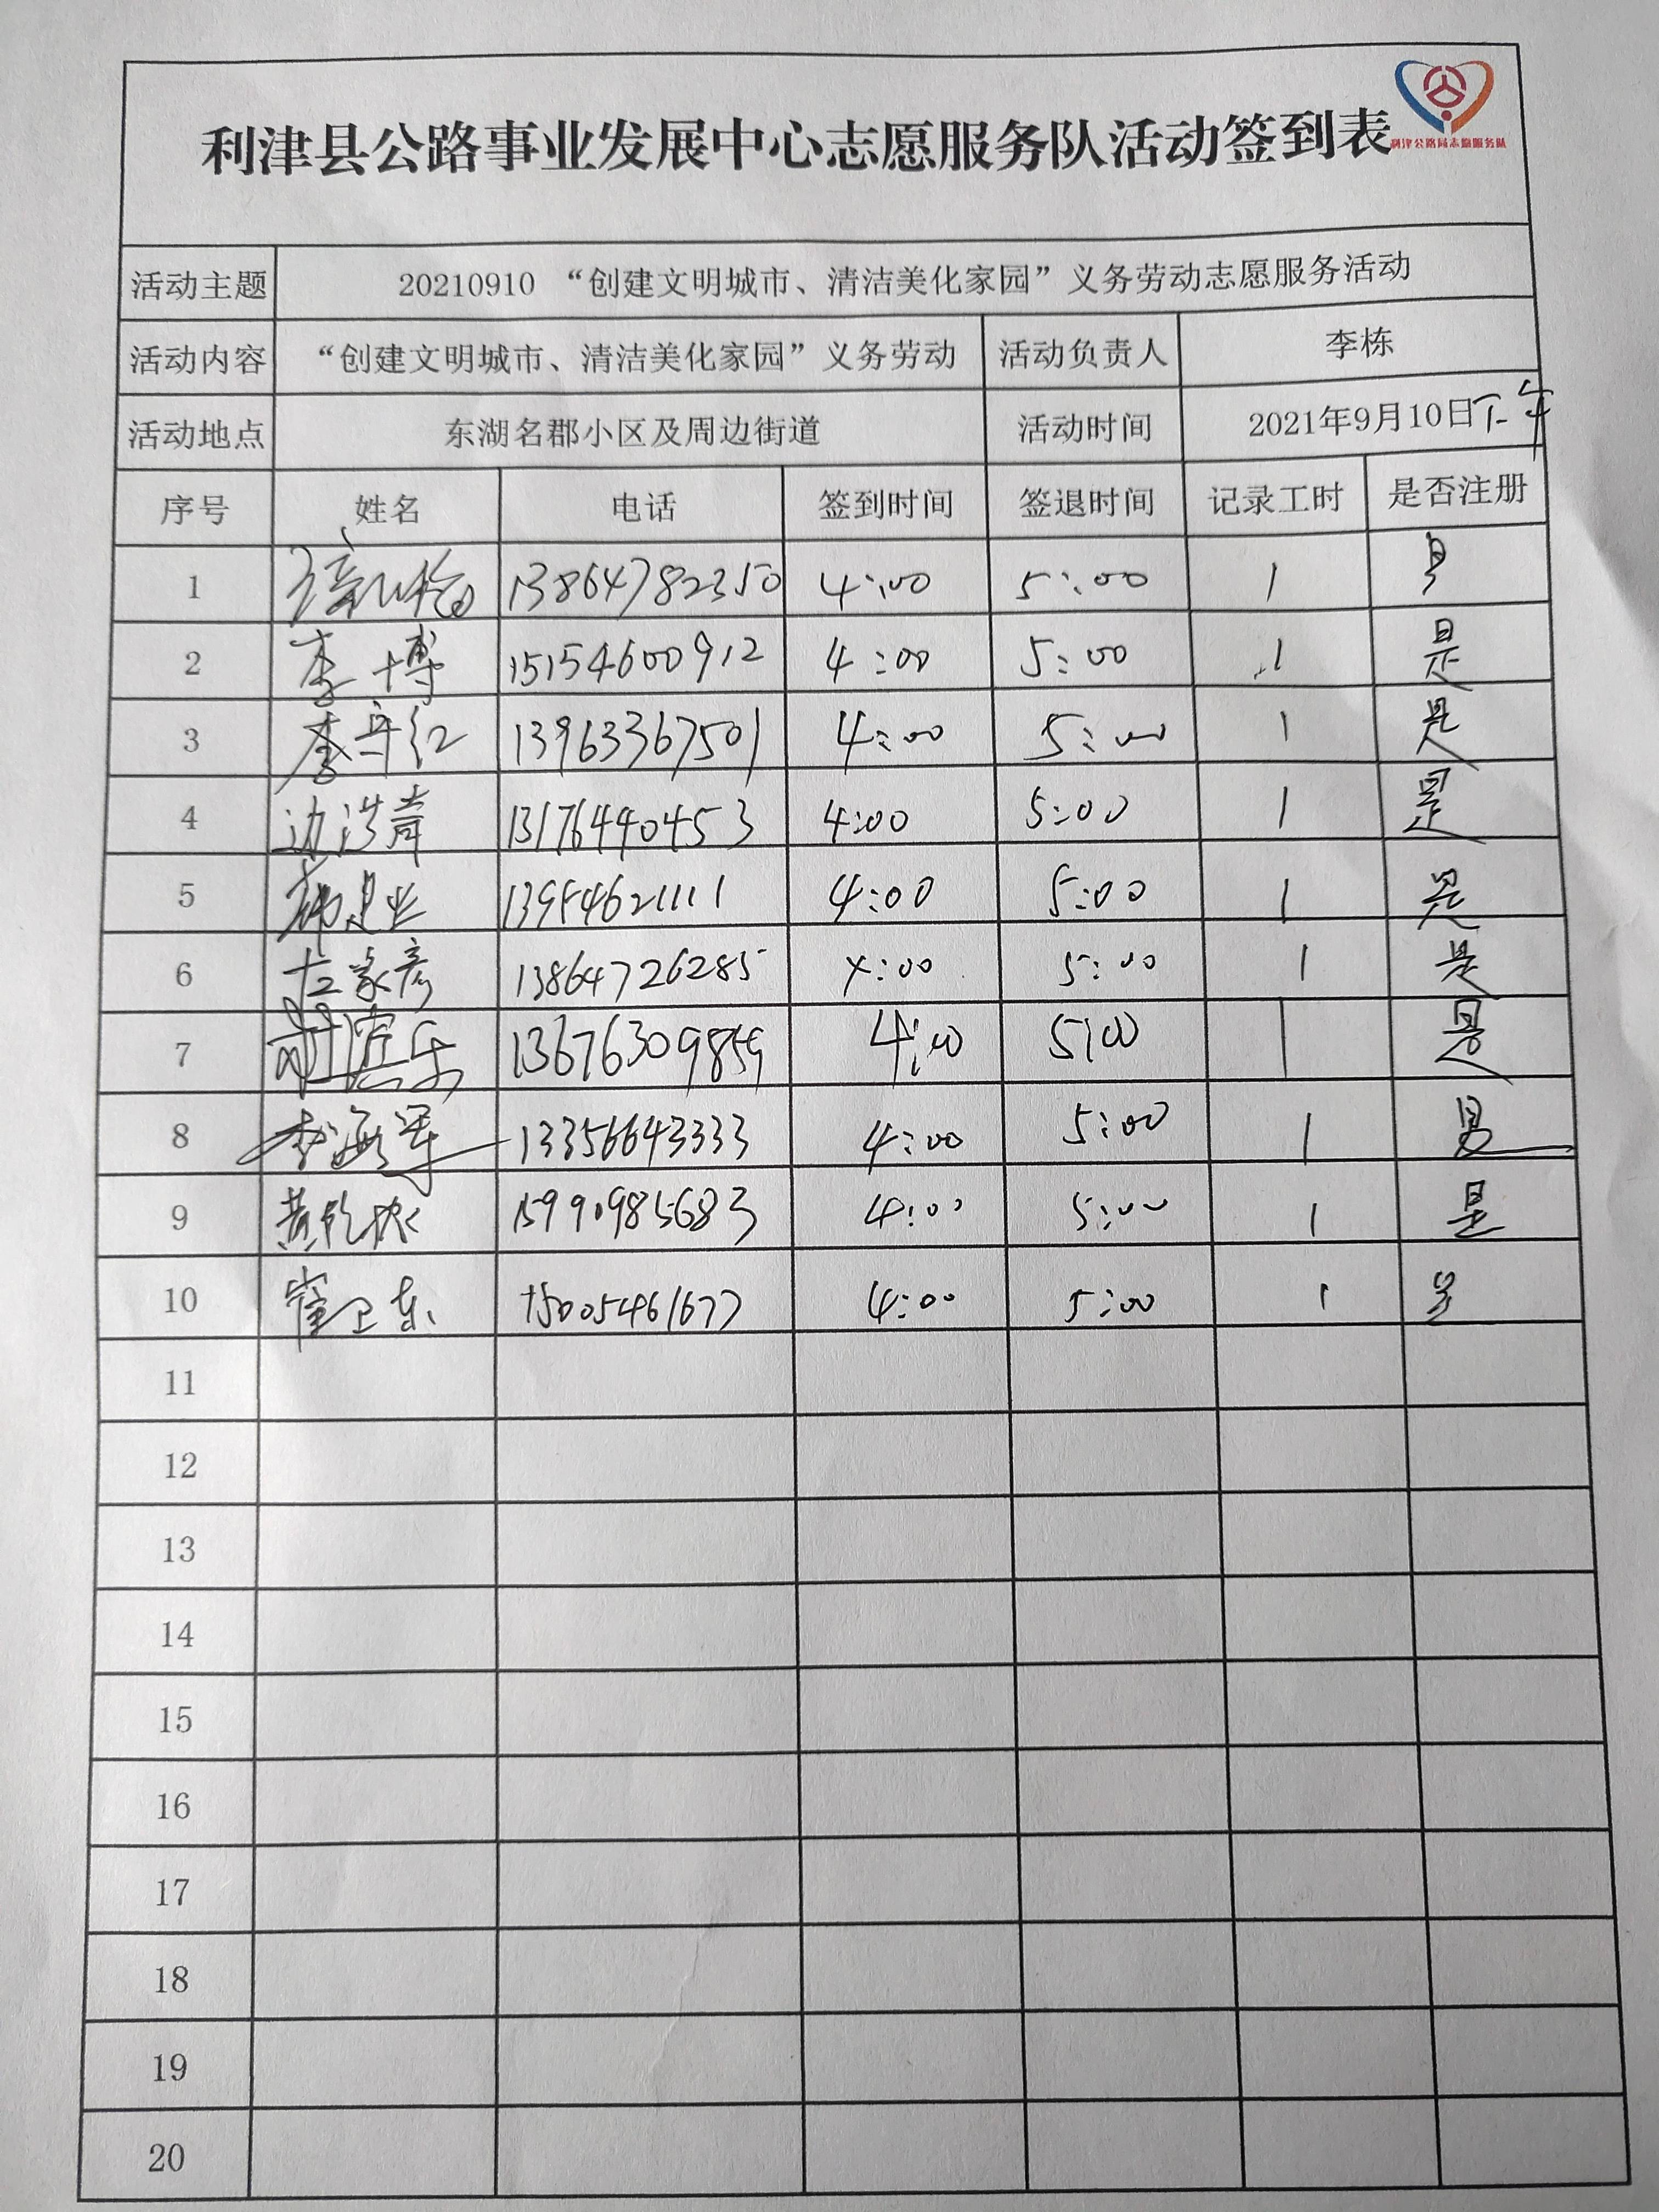 利津县公路事业发展中心志愿服务队活动签到表
利津公路局志愿服务队
活动主题 20210910 “创建文明城市、清洁美化家园”义务劳动志愿服务活动
活动内容 “创建文明城市、清洁美化家园”义务劳动 活动负责人 李栋
活动地点 东湖名郡小区及周边街道 活动时间 2021年9月10日下午
序号 姓名 电话 签到时间 签退时间 记录工时 是否注册
1 13864782350 4:00 5:00 1 是
2 李博 15154600912 4:00 5:00 1 是
3 李守红 13963367501 4:00 5:00 1 是
4 边洪 13176440453 4:00 5:00 1 是
5 韩建业 13954621111 4:00 5:00 1 是
6 左家彦 13864726285 4:00 5:00 1 是
7 13676309859 4:00 5:00 1 是
8 李海军 13356643333 4:00 5:00 1 是
9 黄 15990985683 4:00 5:00 1 是
10 崔卫东 15005461677 4:00 5:00 1 是
11
12
13
14
15
16
17
18
19
20